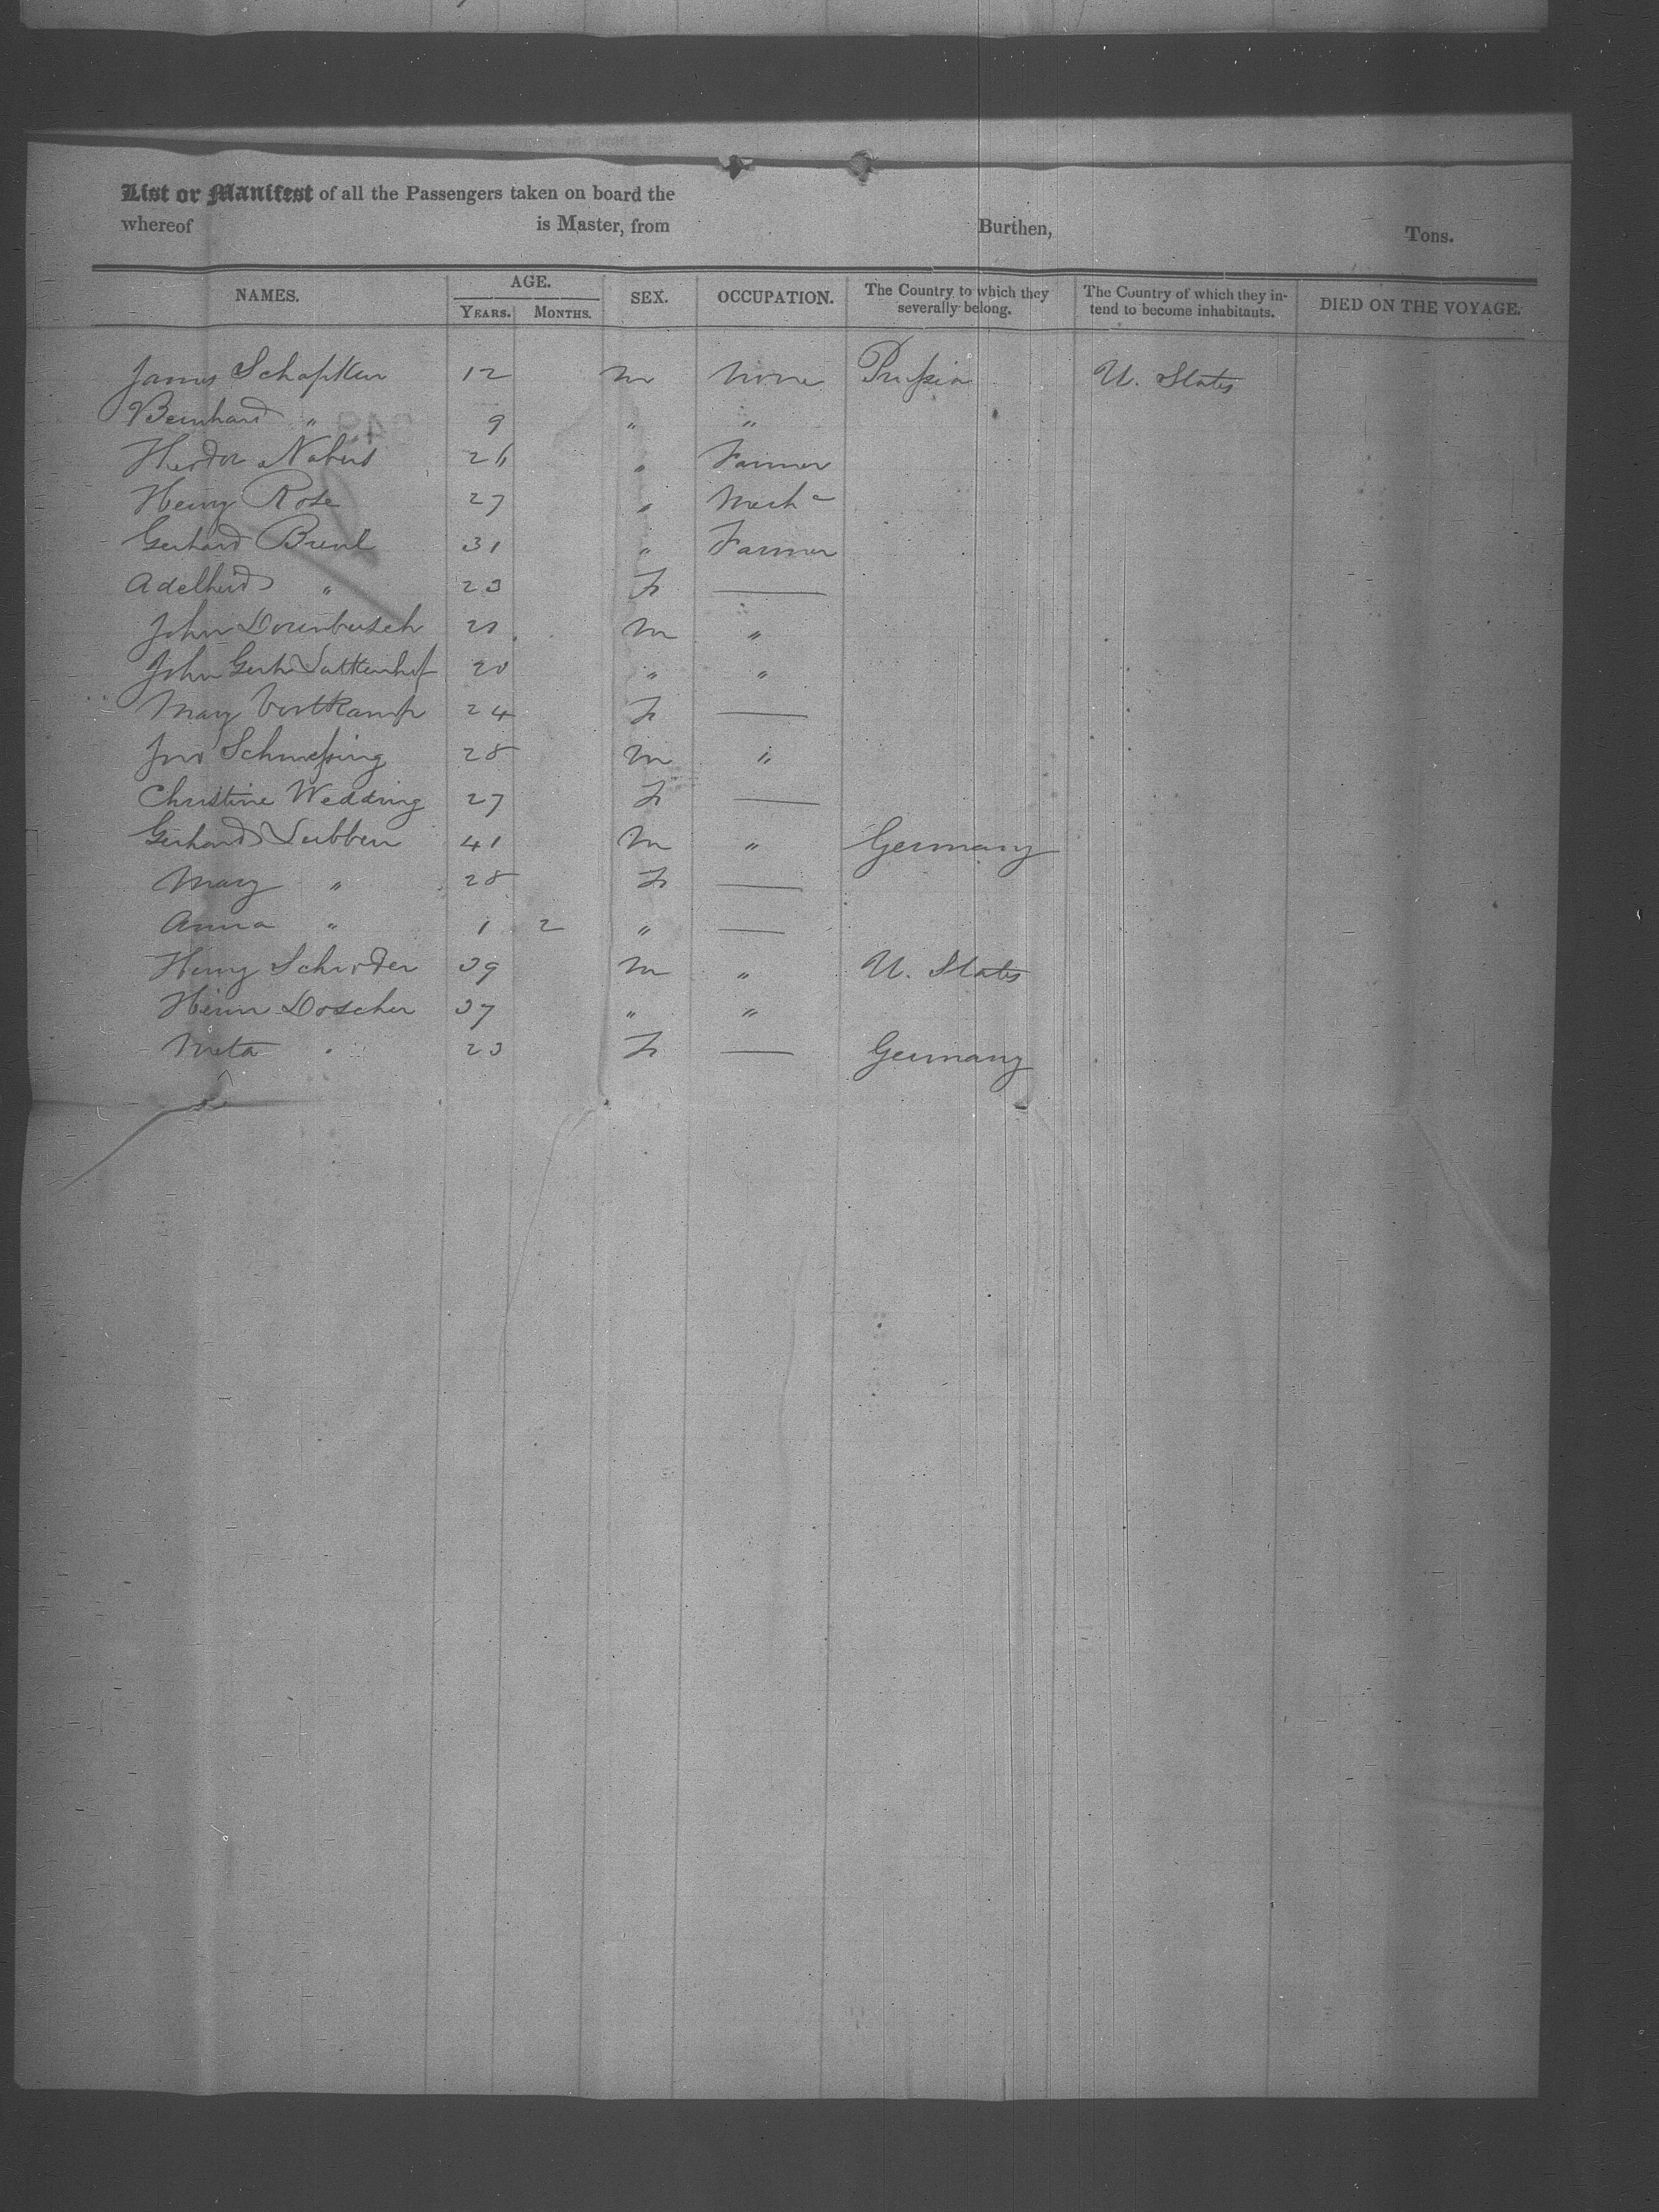 List or Manifest of all the Passengers taken on board the
whereof is Master, from Burthen, Tons.
NAMES. AGE. SEX. OCCUPATION. The Country to which they severally belong. The Country of which they in-tend to become inhabitants. DIED ON THE VOYAGE.
YEARS. MONTHS.
James Schapken 12 m None Prussia U. States
Bernhard " 9 " "
Theodor Nabers 26 " Farmer
Henry Rose 27 " Mech c
Gerhard 31 " Farmer
Adelheid " 23 F —
John Dornbusch 28 m "
John Gerh 20 " "
Mary Vortkamp 24 F —
Jno Schmessing 28 m "
Christine Wedding 27 F —
Gerhard Lubben 41 m " Germany
Mary " 28 F —
Anna " 1 2 " —
Henry Schroder 39 m " U. States
Heinr Doscher 37 " "
Meta " 23 F — Germany